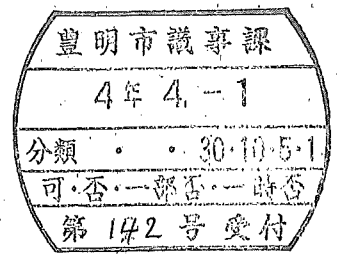 豊明市議事課
4年 4.-1
分類 ・ ・ 30・10・5・1
可・否・一部否・一時否
第 142 号 受付